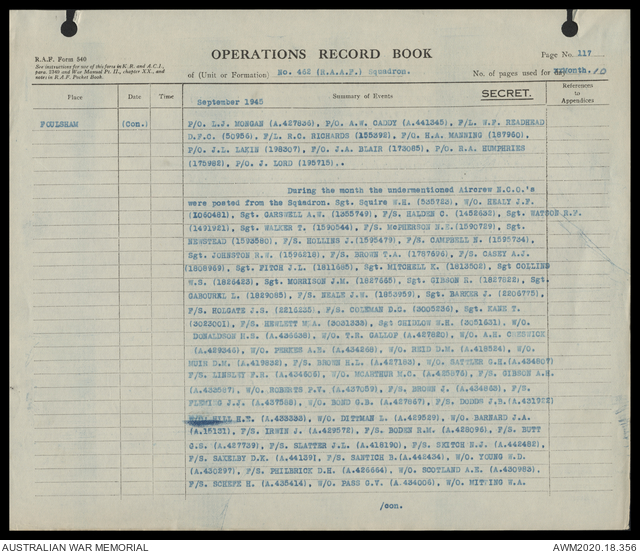 R.A.F. Form 540
See instructions for use of this form in K.R. and A.C.I.,
para. 2349 and War Manual Pt. II., chapter XX., and
notes in R.A.F. Pocket Book.
OPERATIONS RECORD BOOK
of (Unit or Formation) No. 462 (R.A.A.F.) Squadron.
Page No. 117
No. of pages used for Month.
Place Date Time Summary of Events SECRET. References to Appendices
September 1945
FOULSHAM (Con.) P/O. L.J. MORGAN (A.427836), P/O. A.W. CADDY (A.441345), F/L. W.F. READHEAD
D.F.C. (50956), F/L. R.C. RICHARDS (155392), F/O. H.A. MANNING (187960),
P/O. J.L. LAKIN (198307), F/O. J.A. BLAIR (173085), P/O. R.A. HUMPHRIES
(175982), P/O. J. LORD (195715)..
During the month the undermentioned Aircrew N.C.O.'s
were posted from the Squadron. Sgt. Squire W.H. (535723), W/O. HEALY J.F.
(1060481), Sgt. GARSWELL A.W. (1355749), F/S. HALDEN C. (1452632), Sgt. WATSON R.F.
(1491921), Sgt. WALKER T. (1590544), F/S. McPHERSON N.E. (1590729), Sgt.
NEWSTEAD (1593580), F/S. HOLLINS J. (1595479), F/S. CAMPBELL N. (1595734),
Sgt. JOHNSTON R.W. (1596218), F/S. BROWN T.A. (1787696), F/S. CASEY A.J.
(1808969), Sgt. FITCH J.L. (1811685), Sgt. MITCHELL K. (1813502), Sgt COLLINS
W.S. (1826423), Sgt. MORRISON J.M. (1827665), Sgt. GIBSON R. (1827822), Sgt.
GABOUREL L. (1829085), F/S. NEALE J.W. (1853959), Sgt. BARKER J. (2206775),
F/S. HOLGATE J.S. (2216235), F/S. COLEMAN D.C. (3005236), Sgt. KANE T.
(3023001), F/S. HEWLETT M.A. (3031333), Sgt CHIDLOW W.H. (3051631), W/O.
DONALDSON H.S. (A.436636), W/O. T.R. GALLOP (A.427820), W/O. A.H. CHESWICK
(A.429346), W/O. PERKES A.H. (A.434268), W/O. REID D.M. (A.418524), W/O.
MUIR D.M. (A.419832), F/S. BROWN H.L. (A.427183), W/O. SATTLER G.H. (A.434807)
F/S. LINSLEY F.R. (A.434606), W/O. MCARTHUR M.C. (A.425876), F/S. GIBSON A.H.
(A.433587), W/O. ROBERTS F.V. (A.437059), F/S. BROWN J. (A.434863), F/S.
FLEMING J.J. (A.437586), W/O. BOND G.B. (A.427867), F/S. DODDS J.B. (A.431922)
HILL H.T. (A.433333), W/O. DITTMAN L. (A.429529), W/O. BARNARD J.A.
(A.18131), F/S. IRWIN J. (A.429572), F/S. BODEN R.M. (A.428096), F/S. BUTT
J.S. (A.427739), F/S. SLATTER J.L. (A.418190), F/S. SKITCH N.J. (A.442482),
F/S. SAXELBY D.K. (A.44139), F/S. SANTICH B. (A.442434), W/O. YOUNG W.D.
(A.430297), F/S. PHILBRICK D.H. (A.426664), W/O. SCOTLAND A.E. (A.430983),
F/S. SCHEFE H. (A.435414), W/O. PASS G.V. (A.434006), W/O. MITTING W.A.
/con.
AUSTRALIAN WAR MEMORIAL
AWM2020.18.356